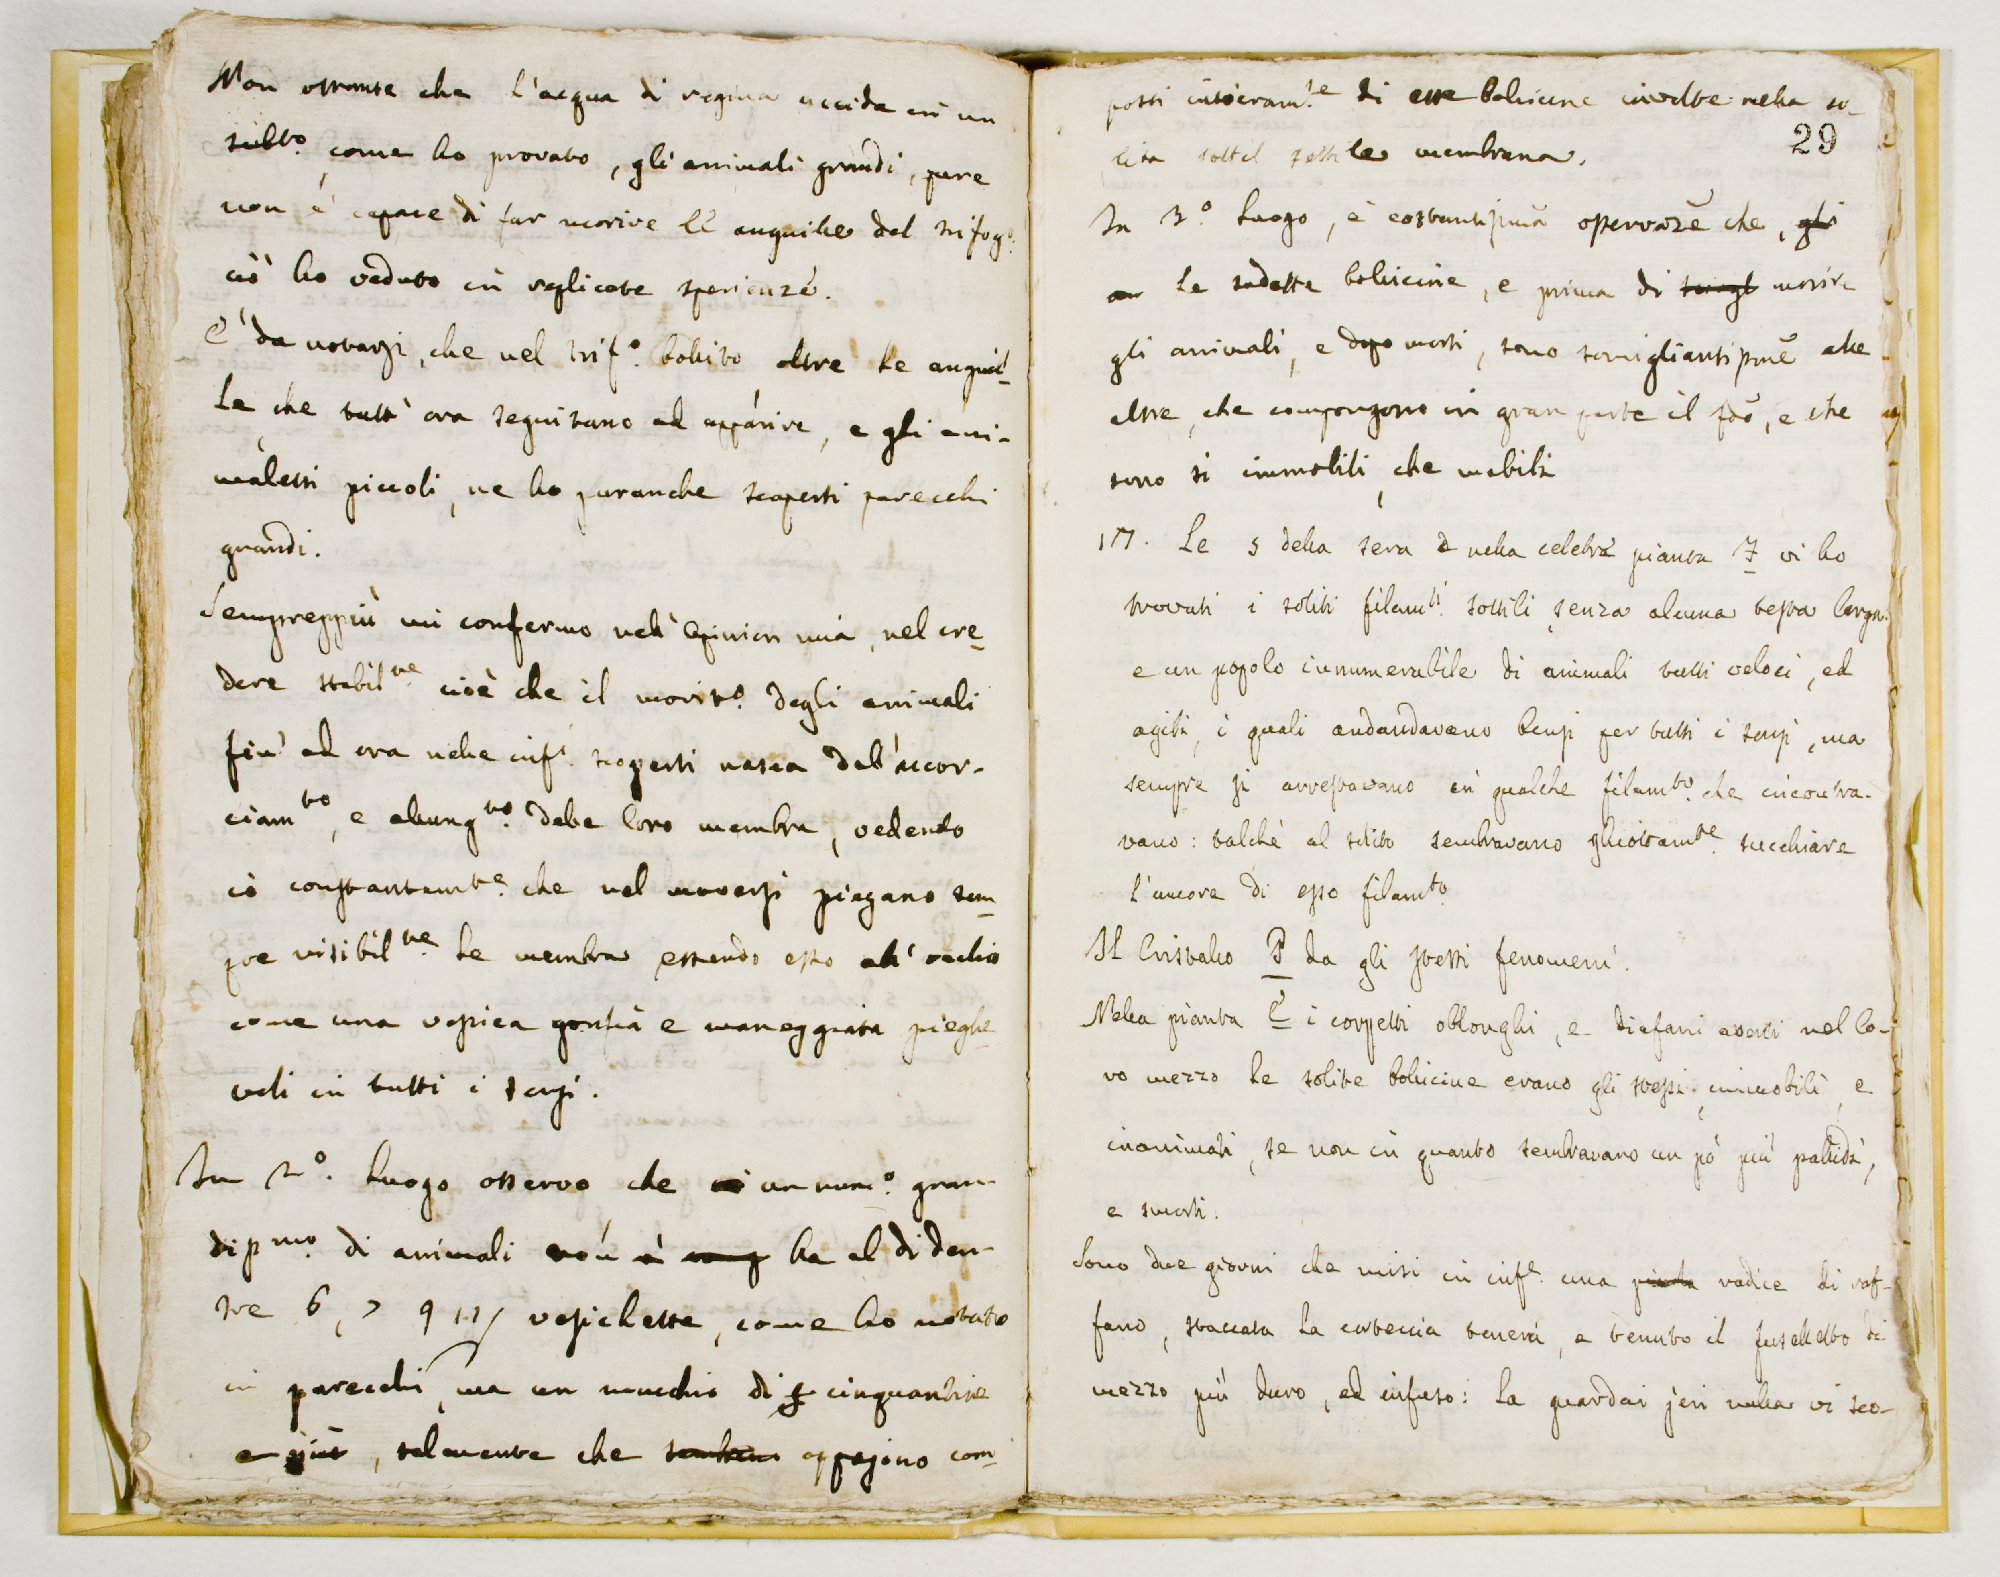 Non ostante che l'acqua di regina uccida in un
subbo. come ho provato, gli animali grandi, pure
non è capace di far morire l'e anguille del trifog.o
ciò ho veduto in replicate sperienze.
E' da notarsi, che nel trif.o bollito oltre le anguil-
le, che tutt'ora seguitano ad apparire, e gli ani-
maletti piccoli, ne ho puranche scoperti parecchi
grandi.
Sempreppiù mi confermo nell'opinion mia, nel cre-
dere stabil.me cioè che il movim.to degli animali
fin' ad ora nelle inf.i scoperti nasca dall'accor-
ciam.to, e allung.to delle loro membra, vedendo
io constantem.te che nel moversi piegano sem-
pre visibil.me le membra essendo esso all'occhio
come una vessica gonfia e maneggiata pieghe-
voli in tutti i sensi.
In 2.o luogo osservo che un num.o gran-
diss.mo di animali non ha al di den-
tre 6, 7 9 vesichette, come ho notato
in parecchi, ma un mucchio di cinquantine
e più, talmente che appajono com-
posti intieram.te di esse bollicine involte nella so-
29
lita sottil sottile membrana.
In 3.o luogo, è costantissima osservaz.e che, gli
le sudette bollicine, e prima di morire
gli animali, e dopo morti, sono somigliantissime alle
altre, che compongono in gran parte il fdo, e che
sono sì immobili, che mobili
17. Le 5 della sera nella celebre pianta 7 vi ho
trovati i soliti filam.ti sottili senza alcuna testa larga
e un popolo innumerabile di animali tutti veloci, ed
agili, i quali andandavano bensì per tutti i sensi, ma
sempre si arrestavano in qualche filam.to che incontra-
vano: talchè al solito sembravano ghiottam.te succhiare
l'umore di esso filam.to
Il Cristallo P da gli stessi fenomeni.
Nella pianta E i corpetti oblonghi, e diafani aventi nel lo-
ro mezzo le solite bollicine erano gli stessi, immobili, e
inanimati, se non in quanto sembravano un pò più pallidi,
e smorti.
Sono due giorni che misi in inf.e una radice di raf-
fano, staccata la corteccia tenera, e tenuto il fuselletto di
mezzo più duro, ed infuso: la guardai jeri nulla vi sco-